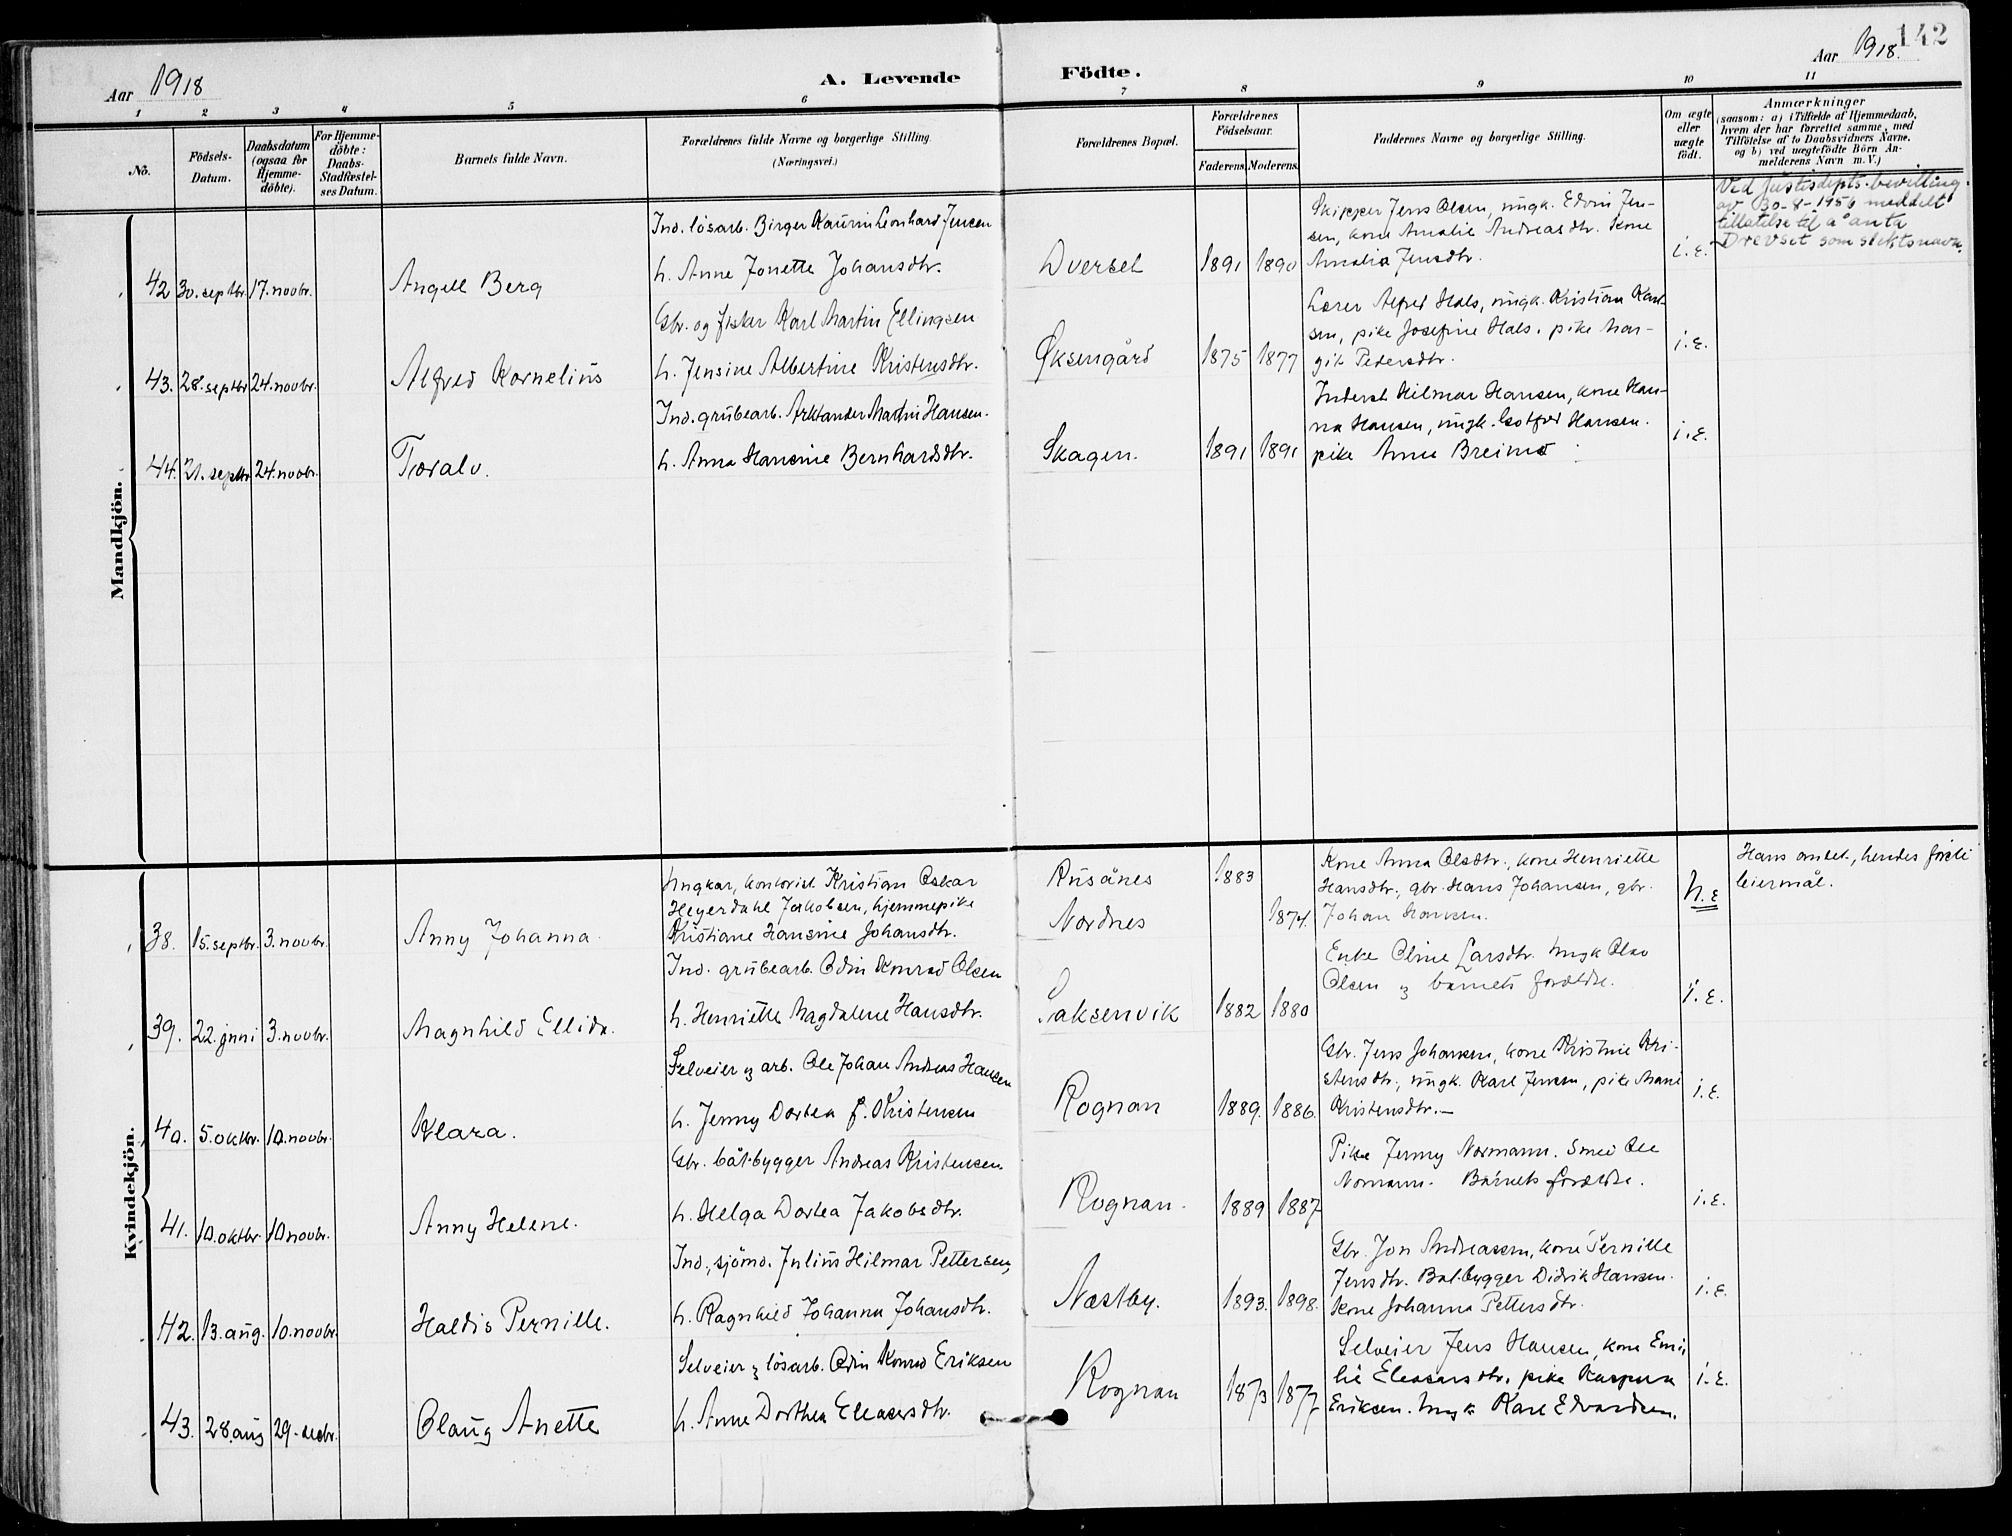 142
Aar 1918
A. Levende Födte.
Aar 1918.
1 2 3 4 5 6 7 8 9 10 11
No.
Födsels-
Datum.
Daabsdatum
(ogsaa for
Hjemme-
döbte).
For Hjemme-
döbte:
Daabs-
Stadfæstel-
ses Datum.
Barnets fulde Navn.
Forældrenes fulde Navne og borgerlige Stilling.
(Næringsvei.)
Forældrenes Bopæl.
Forældrenes
Födselsaar.
Faderens. Moderens.
Faddernes Navne og borgerlige Stilling.
Om ægte
eller
uægte
födt.
Anmærkninger
(saasom: a) i Tilfælde af Hjemmedaab,
hvem der har forrettet samme, med
Tilföielse af to Daabsvidners Navne,
og b) ved uægtefödte Börn An-
melderens Navn m. V.)
Mandkjön.
42 30. septbr. 17. novbr.
Angell Berg
Ind. lösarb. Birger Kaurin Leonhard Jensen
h. Anne Jonette Johansdtr.
Dverset
1891 1890
Skipper Jens Olsen, ungk. Edvin Jen-
sen, kone Amalie Andreasdtr. kone
Amalia Jensdtr.
i.e.
Ved Justisdepts. bevilling
av 30-8-1956 meddelt
tillatelse til å anta
Drevset som slektsnavn.
43. 28. septbr. 24. novbr.
Alfred Kornelius
Gbr. og fisker Karl Martin Ellingsen
h. Jensine Albertine Kristensdtr.
Øksengård
1875 1877
Lærer Alfred Hals, ungk. Kristian Karl-
sen, pike Josefine Hals, pike Mar-
git Pedersdtr.
i.e.
44. 21. septbr. 24. novbr.
Toralv.
Ind. grubearb. Arktander Martin Hansen.
h. Anna Hansine Bernhardsdtr.
Skagen.
1891 1891
Inderst Hilmar Hansen, kone Han-
na Hansen, ungk. Gotfred Hansen.
pike Anne Breimo
i.e.
Kvindekjön.
38. 15. septbr. 3. novbr.
Anny Johanna
Ungkar, kontorist Kristian Oskar
Heyerdahl Jakobsen, hjemmepike
Kristiane Hansine Johansdtr.
Rusånes
Nordnes
1883
1874.
Kone Anna Olsdtr., kone Henriette
Hansdtr., gbr. Hans Johansen, gbr.
Johan Hansen.
u.e
Hans andet, hendes förste
leiermål.
39. 22. juni 3. novbr.
Magnhild Ellida.
Ind. grubearb. Odin Konrad Olsen
h. Henriette Magdalene Hansdtr.
Saksenvik
1882 1880
Enke Oline Larsdtr. Ungk Olav
Olsen og barnets forældre.
i.e.
40. 5. oktbr. 10. novbr.
Klara.
Selveier og arb. Ole Johan Andreas Hansen
h. Jenny Dortea f. Kristensen
Rognan
1889. 1886.
Gbr. Jens Johansen, kone Kristine Kri-
stensdtr., ungk. Karl Jensen, pike Marie
Kristensdtr.—
i.e.
41. 10. oktbr. 10 novbr.
Anny Helene.
Gbr. båtbygger Andreas Kristensen
h. Helga Dortea Jakobsdtr.
Rognan.
1889 1887
Pike Jenny Normann. Smed Ole
Normann. Barnets forældre.
i.e.
42. 13. aug. 10. novbr.
Haldis Pernille.
Ind., sjömd. Julius Hilmar Pettersen,
h. Ragnhild Johanna Johansdtr.
Næstby.
1893. 1898.
Gbr. Jon Andreassen, kone Pernille
Jensdtr. Båtbygger Didrik Hansen.
kone Johanna Pettersdtr.
i.e.
43. 28. aug 29. decbr.
Olaug Anette
Selveier og lösarb. Odin Konrad Eriksen
h. Anne Dorthea Eleasersdtr.
Rognan
1873 1877
Selveier Jens Hansen, kone Emi-
lie Eleasarsdtr. pike Kaspara
Eriksen. Ungk Karl Edvardsen.
i.e.